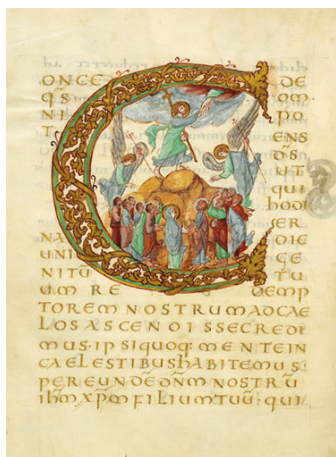 CONCE DE
q̄s OM
NI PO
T ENS
D̄S
UT
QUI
HODI
ER
NA DIE
UNI GE
NITU TU
UM RE DEMP
TOREM NOSTRUM AD CAE
LOS ASCENDISSE CREDI
MUS· IPSI QUOQ; MENTE IN
CAELESTIBUS HABITEMUS
PER EUNDĒ DN̄M NOSTRŪ
IHM̄ XPM̄ FILIUM TUŪ· QUI